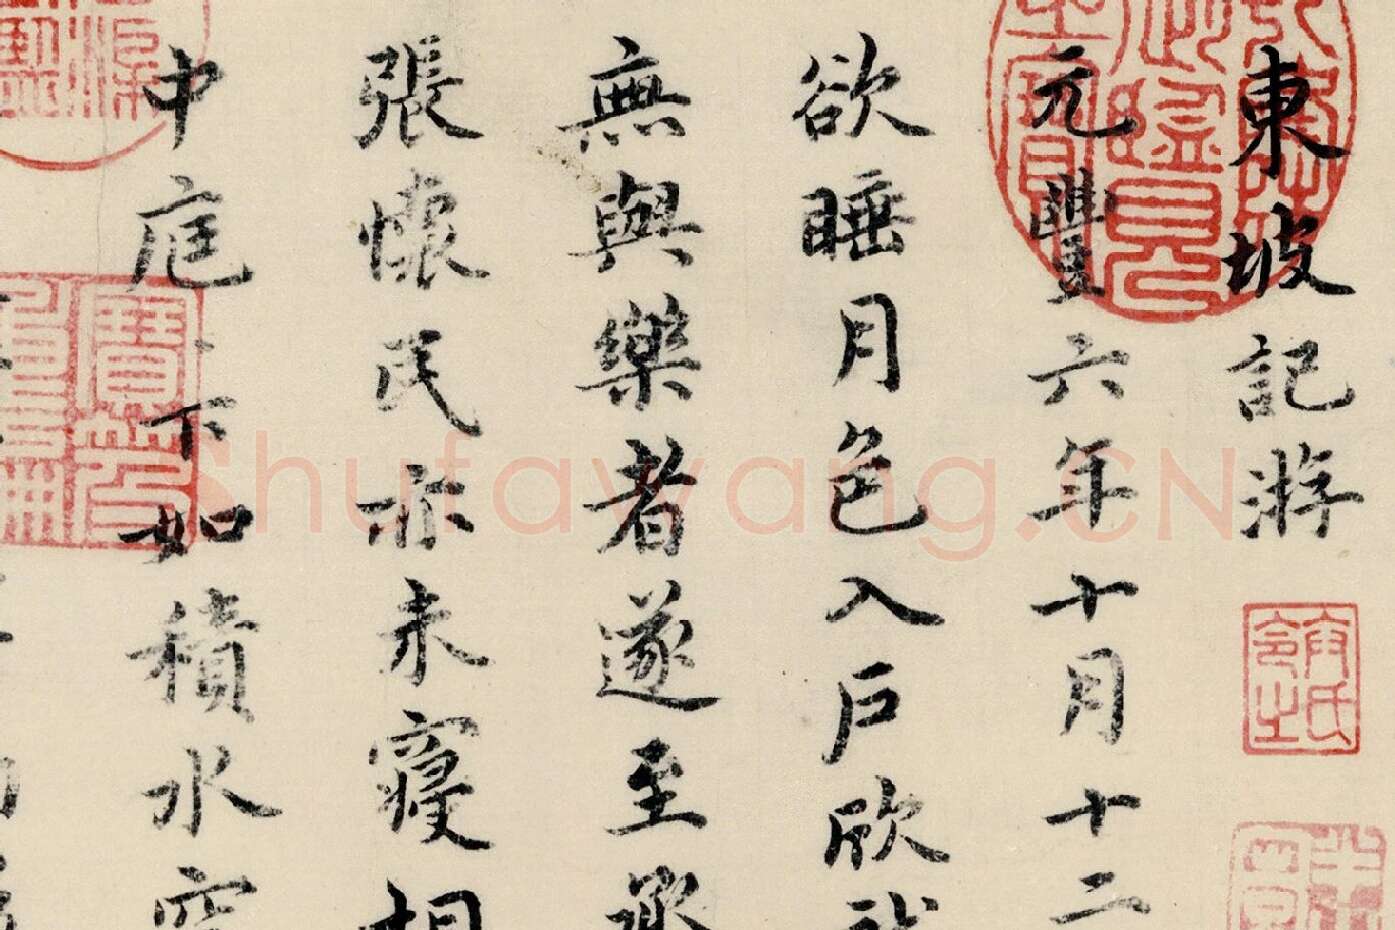 東坡記游
元豐六年十月十二
欲睡月色入戶欣
無與樂者遂至承
張懷民亦未寢相
中庭下如積水空
Shufawang.CN